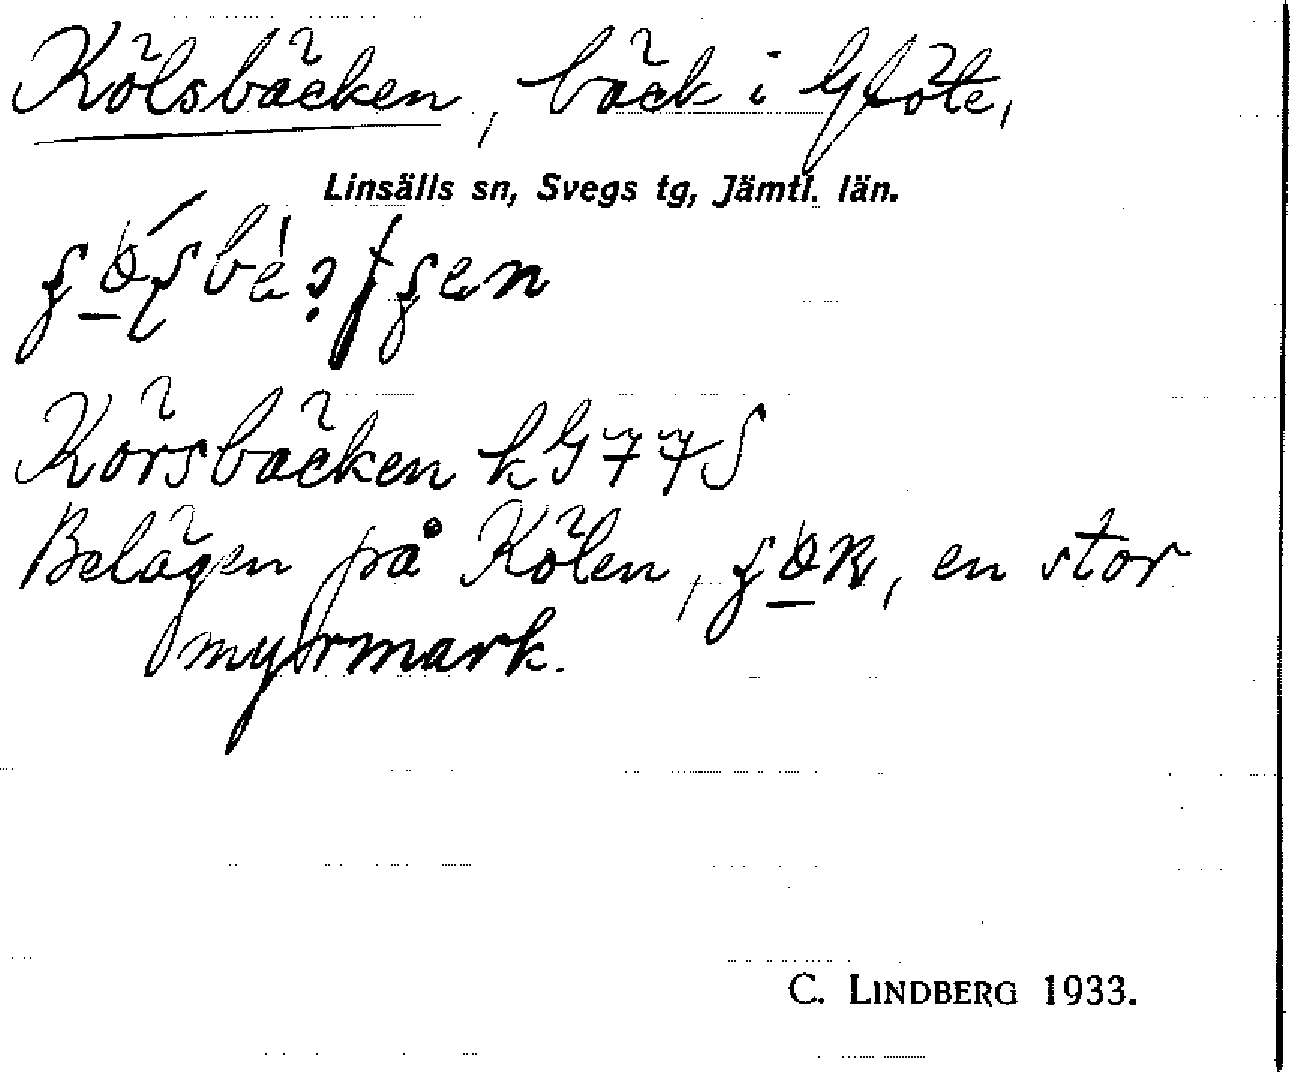 Kölsbäcken, bäck i Glöte,
Linsälls sn, Svegs tg, Jämtl. län.
Körsbäcken k G 77 S
Belägen på Kölen, en stor
myrmark.
C. LINDBERG 1933.